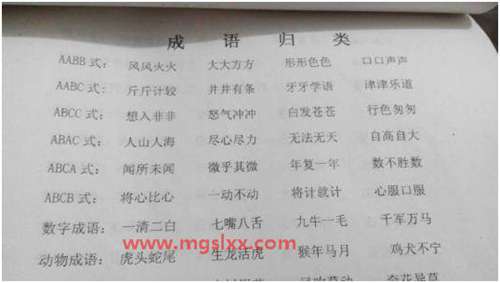 成 语 归 类
AABB 式： 风风火火 大大方方 形形色色 口口声声
AABC 式： 斤斤计较 井井有条 牙牙学语 津津乐道
ABCC 式： 想入非非 怒气冲冲 白发苍苍 行色匆匆
ABAC 式： 人山人海 尽心尽力 无法无天 自高自大
ABCA 式： 闻所未闻 微乎其微 年复一年 数不胜数
ABCB 式： 将心比心 一动不动 将计就计 心服口服
数字成语： 一清二白 七嘴八舌 九牛一毛 千军万马
www.mgslxx.com
动物成语： 虎头蛇尾 生龙活虎 猴年马月 鸡犬不宁